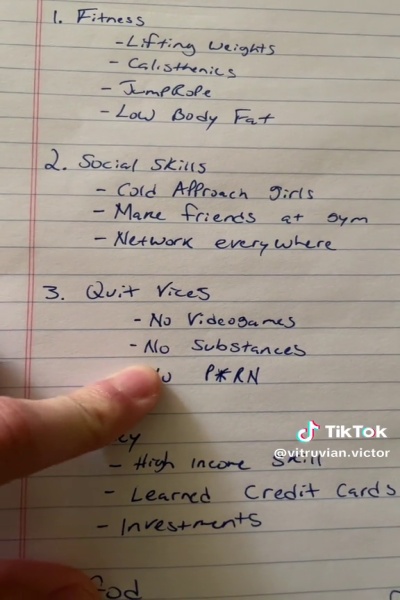 1. Fitness
- Lifting weights
- Calisthenics
- JumpRope
- Low Body Fat
2. Social Skills
- Cold Approach girls
- Make friends at gym
- Network everywhere
3. Quit Vices
- No Videogames
- No Substances
No P*RN
TikTok
@vitruvian.victor
- High Income Skill
- Learned Credit Cards
- Investments
God